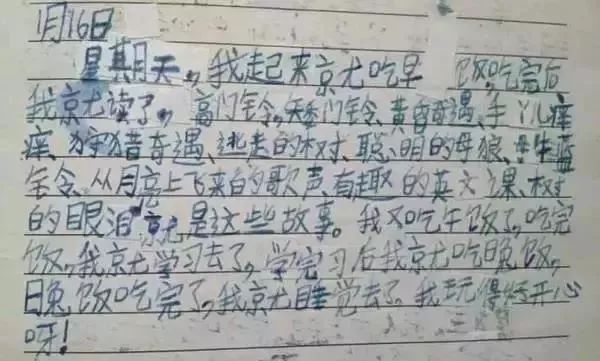 1月16日
星期天，我起来京尤吃早 饭，吃完后
我京尤读了，高门铃、矮门铃、黄昏奇遇、手丫儿痒
痒、狩猎奇遇、逃走的树、聪明的母狼、
令、从月亮上飞来的歌声、有趣的英文课、树
的眼泪京尤是这些故事。我又吃午饭了，吃完
饭，我京尤学习去了，学完习后我京尤吃晚饭，
晚饭吃完了，我京尤睡觉去了。我玩得好开心
呀！